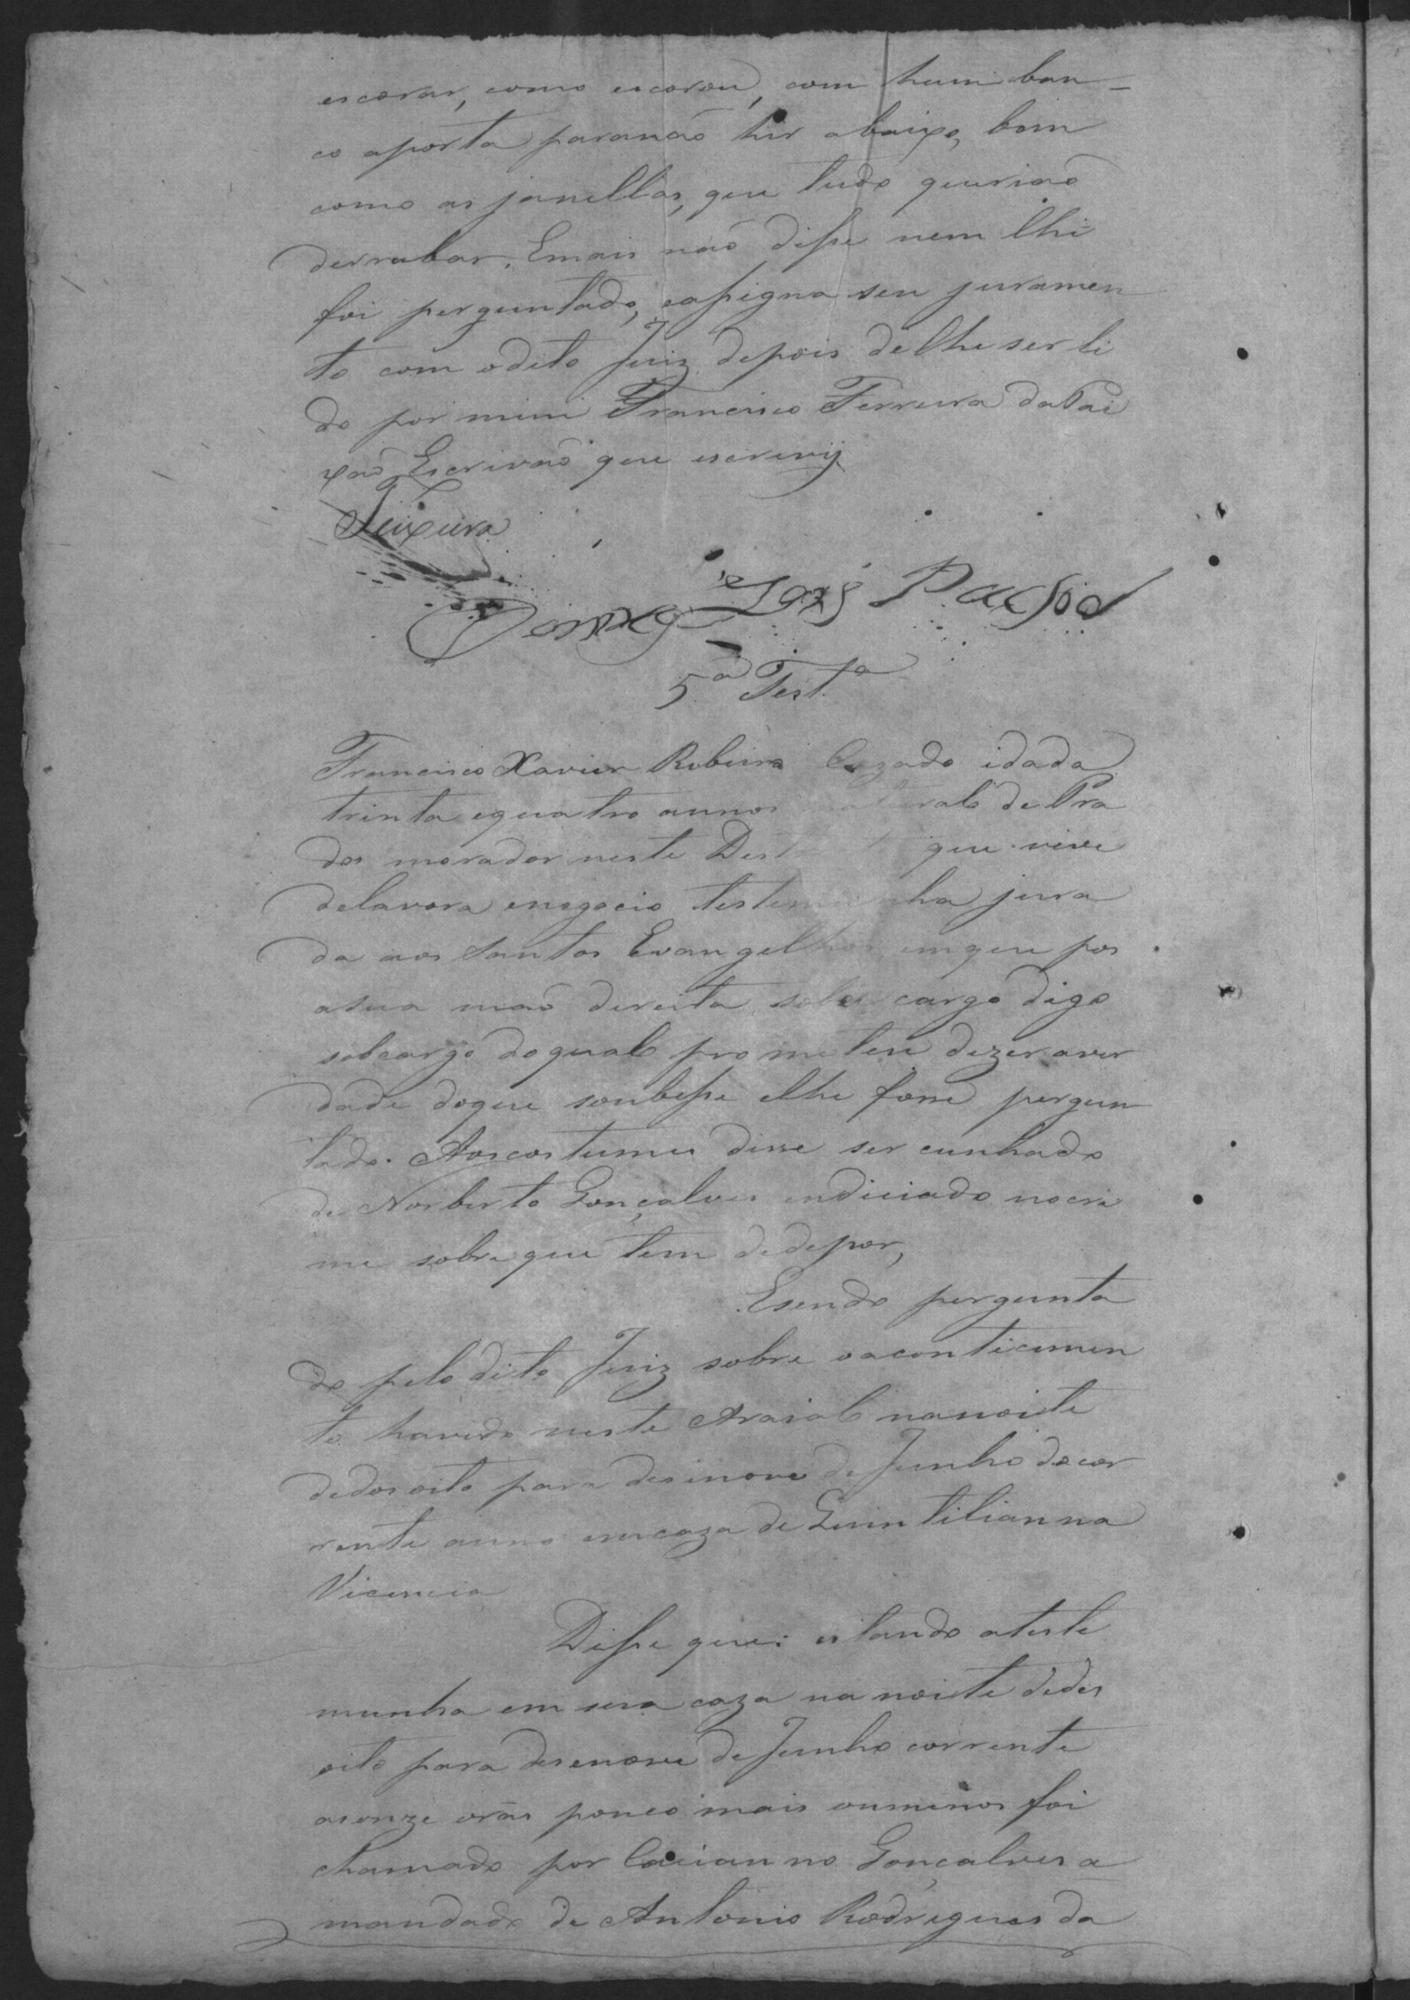 escorar, como escorou, com hum ban-
co aporta paranaõ hir abaixo, bem
como as janellas, que tudo queriaõ
derrubar. Emais naõ disse nem lhe
foi perguntado, eassigna seu juramen
to com odito Juiz depois delhe ser li
do por mim Francisco Ferreira daPai
xaõ Escrivaõ que escrevy
Teixeira
Domingos Joze
5ª Test.ª
Francisco Xavier Ribeiro Cazado idade
trinta equatro annos natural de Pra
dos morador neste Dest que vive
delavora enegocio testemunha jura
da aos Santos Evangelhos emque pos
asua maõ direita sob cargo digo
sobcargo doqual prometeu dizer aver
dade doque soubesse elhe fosse pergun
tado. Aoscostumes disse ser cunhado
de Norberto Gonçalves indiciado nocri
me sobreque tem dedepor,
Esendo pergunta
do pelodito Juiz sobre oaconticimen
to havido neste Araial nanoite
dedesoito para desenove de Junho docor
rente anno emcaza de Quintilianna
Vicencia
Disse que: estando ateste
munha em sua caza na noite dedes
oito para desenove deJunho corrente
asonze oras pouco mais oumenos foi
chamado por Cacianno Gonçalves a
mandado de Antonio Rodrigues da